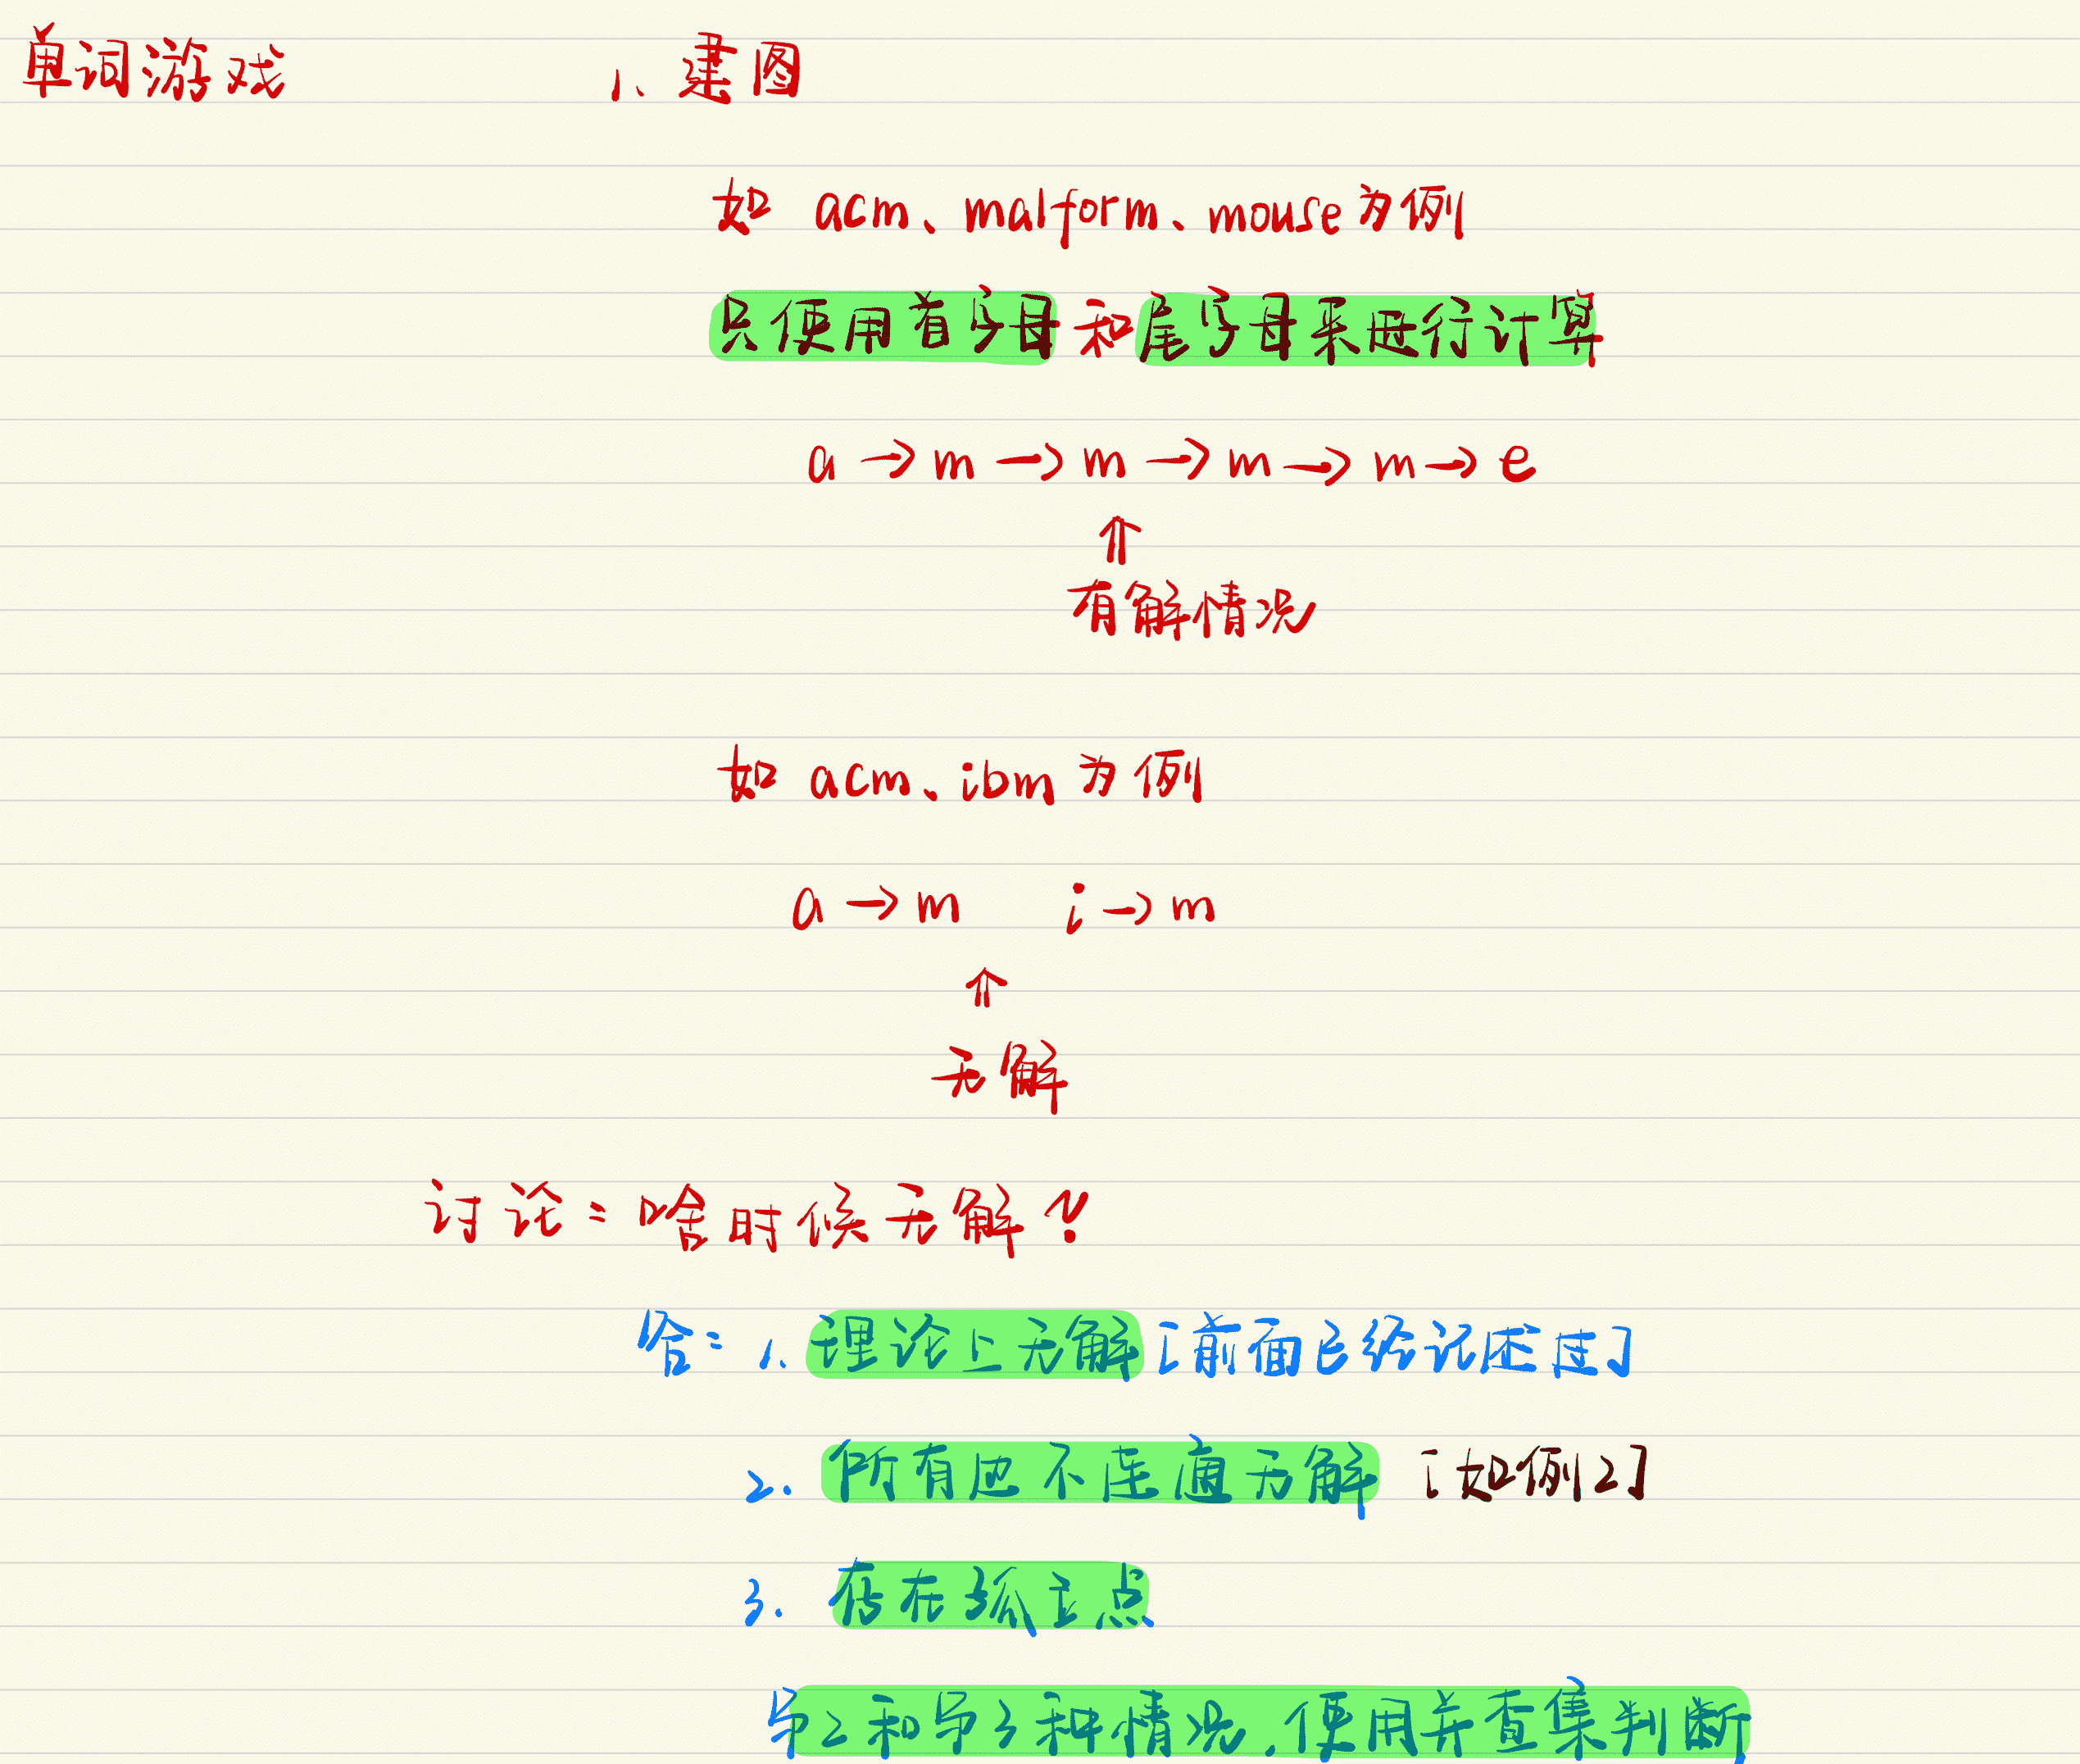 单词游戏 1、建图
如 acm、malform、mouse为例
只使用首字母和尾字母来进行计算
a→m→m→m→m→e
⇑
有解情况
如 acm、ibm 为例
a→m i→m
⇑
无解
讨论：啥时候无解？
答：1. 理论上无解 [前面已经记述过]
2. 所有边不连通无解 [如例2]
3. 存在孤立点
第2和第3种情况，使用并查集判断